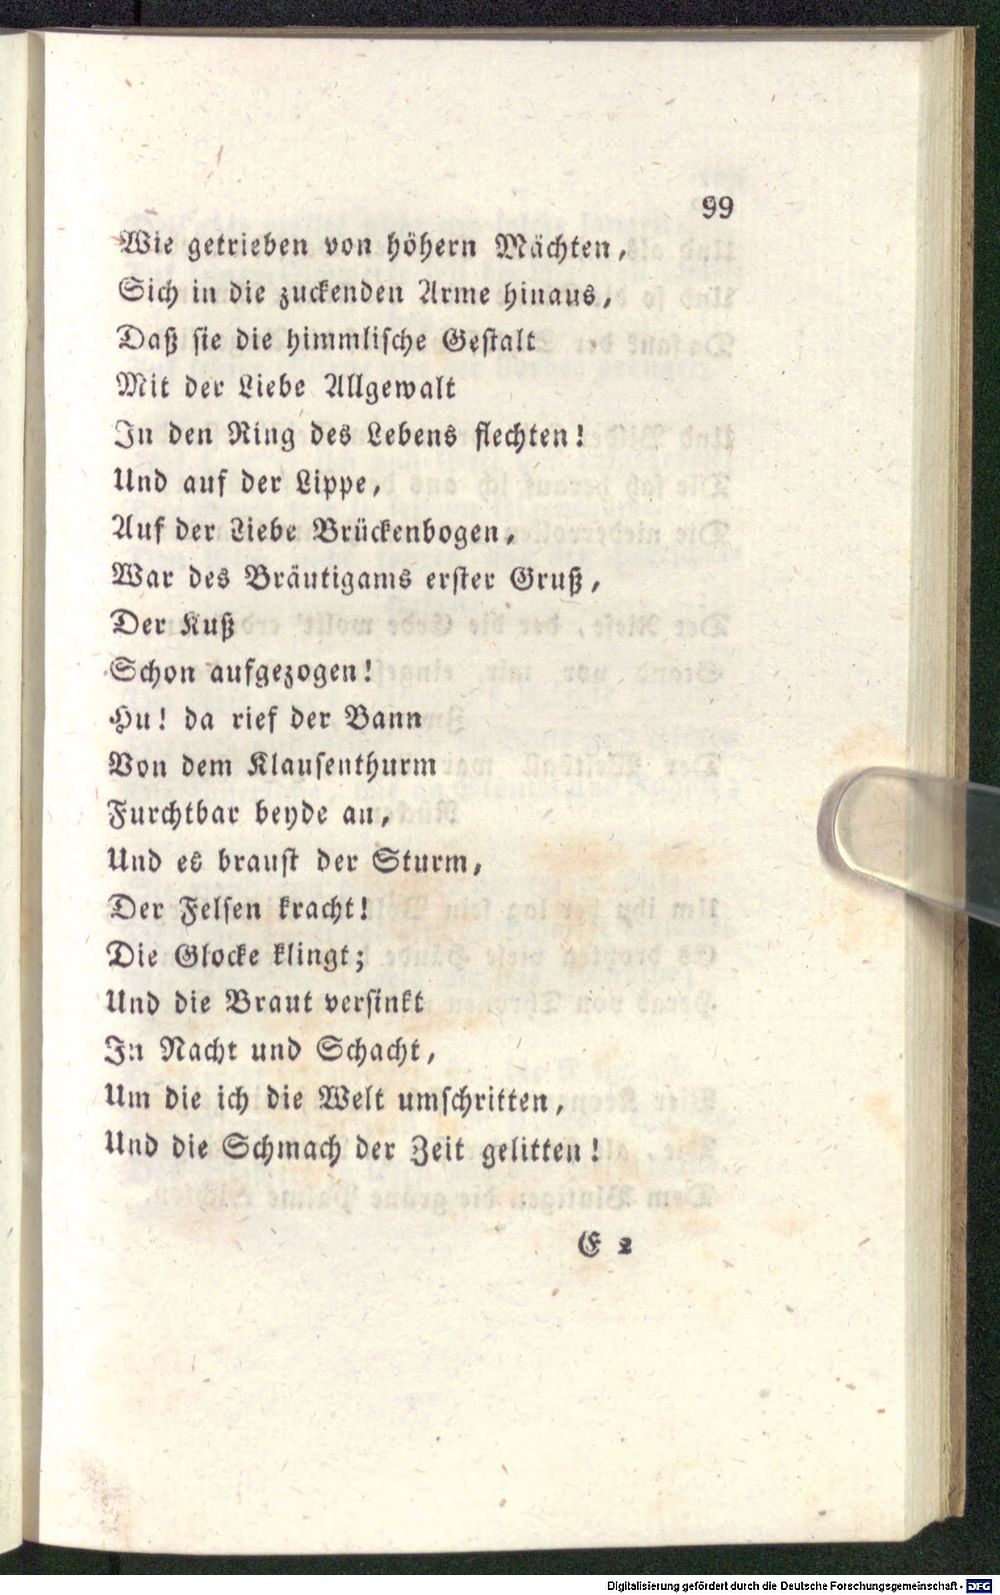 99
Wie getrieben von höhern Mächten,
Sich in die zuckenden Arme hinaus,
Daß sie die himmlische Gestalt
Mit der Liebe Allgewalt
In den Ring des Lebens flechten!
Und auf der Lippe,
Auf der Liebe Brückenbogen,
War des Bräutigams erster Gruß,
Der Kuß
Schon aufgezogen!
Hu! da rief der Bann
Von dem Klausenthurm
Furchtbar beyde an,
Und es braust der Sturm,
Der Felsen kracht!
Die Glocke klingt;
Und die Braut versinkt
In Nacht und Schacht,
Um die ich die Welt umschritten,
Und die Schmach der Zeit gelitten!
E 2
Digitalisierung gefördert durch die Deutsche Forschungsgemeinschaft - DFG